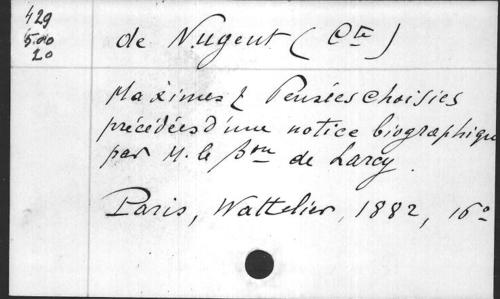 429
500
20
de Nugent (Cte)
Maximes & Pensées choisies
précédées d'une notice biographique
par M. le Bon de Larcy.
Paris, Wattelier, 1882, 16°